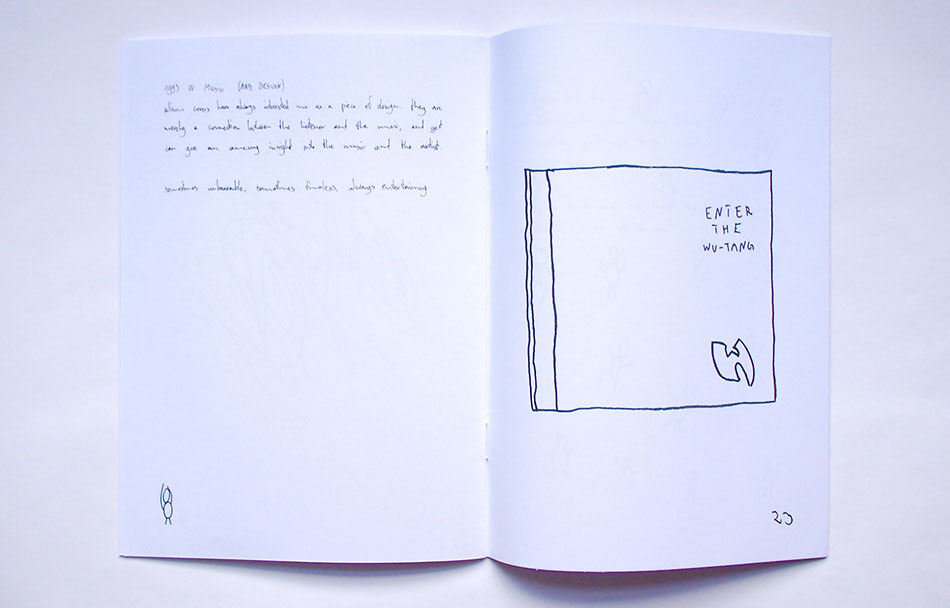 1993 IN MUSIC (AND DESIGN)
album covers have always interested me as a piece of design. they are
merely a connection between the listener and the music, and yet
can give an amazing insight into the music and the artist.
sometimes unbearable, sometimes timeless, always entertaining
ENTER
THE
WU-TANG
23